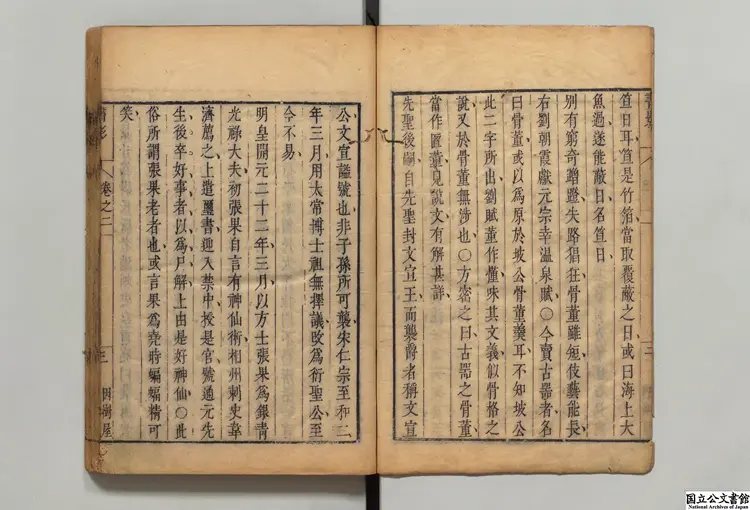 笪日耳笪是竹箔當取覆蔽之日或曰海上大
魚過遂能蔽日名笪日
別有窮奇蹭蹬失路猖狂骨董雖短伎藝能長
右劉朝霞獻元宗幸溫泉賦〇今賣古器者名
曰骨董或以爲原於坡公骨董羮耳不知坡公
此二字所出劉賦董作懂味其文義似骨格之
說又於骨董無涉也〇方密之曰古器之骨董
當作匫見說文有解甚詳
先聖後嗣自先聖封文宣王而襲爵者稱文宣
公文宣謚號也非子孫所可襲宋仁宗至和二
年三月用太常博士祖無擇議改爲衍聖公至
今不易
明皇開元二十二年三月以方士張果爲銀青
光祿大夫初張果自言有神仙術相州刺史韋
濟薦之上遣璽書迎入禁中授是官號通元先
生後卒好事者以爲尸解上由是好神仙〇此
俗所謂張果老者也或言果爲堯時蝙蝠精可
笑
書影 卷之二 三 因樹屋
国立公文書館
National Archives of Japan